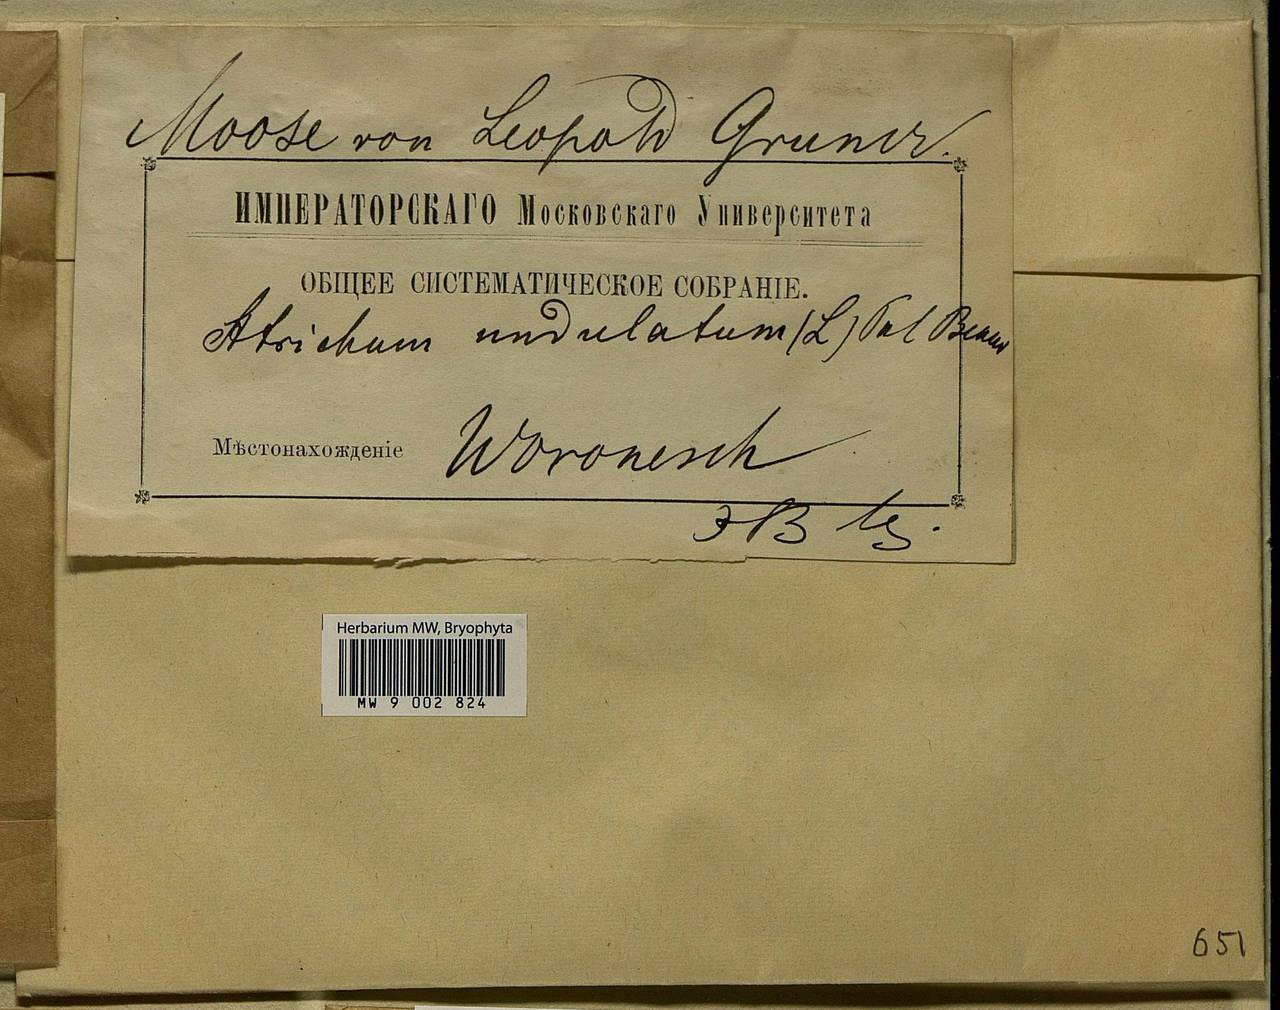 Moose von Leopold Gruner.
ИМПЕРАТОРСКАГО Московскаго Университета
ОБЩЕЕ СИСТЕМАТИЧЕСКОЕ СОБРАНІЕ.
Atrichum undulatum (L) Pal Beauv
Мѣстонахожденіе Woronesch
Herbarium MW, Bryophyta
MW 9 002 824
651